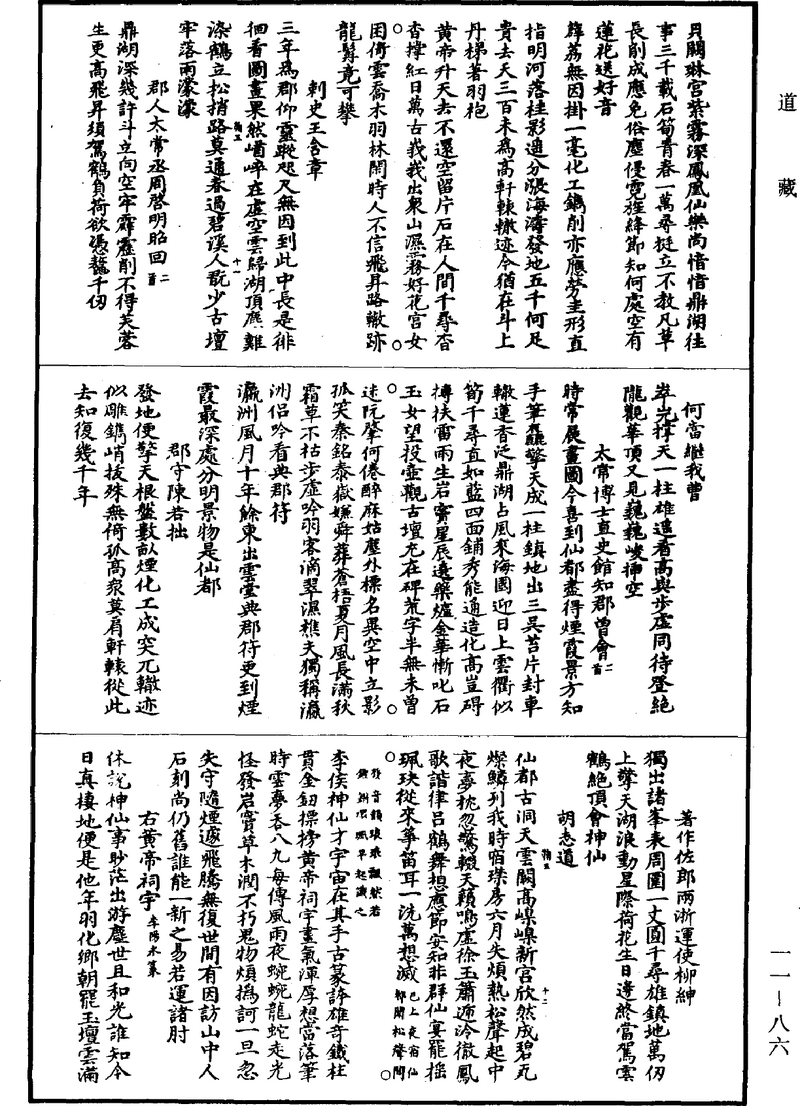 貝闕琳宮紫霧深鳳凰仙樂尚愔愔鼎湖往
事三千載石筍青春一萬尋挺立不教凡草
長削成應免俗塵侵霓旌絳節知何處空有
蓮花送好音
薜荔無因掛一毫化工鐫削亦應勞圭形直
指明河落桂影適分漲海濤發地五千何足
貴去天三百未為高軒轅轍迹今猶在斗上
丹梯著羽袍
黃帝升天去不還空留片石在人間千尋杳
杳撐紅日萬古我我出眾山濕霧好花宮女
困倚雲喬木羽林閑時人不信飛昇路轍跡
龍髯竟可攀
刺史王含章
三年為郡仰靈蹤咫尺無因到此中長是徘
徊看圖畫果然崷崒在虛空雲歸湖頂應難
滌鶴立松捎路莫通春過碧溪人翫少古壇
牢落雨濛濛
郡人太常丞周啓明昭回二首
鼎湖深幾許斗立向空牢霹靂削不得芙蓉
生更高飛昇須駕鶴負荷欲憑鼇千仞
何當繼我曹
崒屼撐天一柱雄遥看高與步虛同待登絕
隴觀華頂又見巍巍峻插空
太常博士直史館知郡曾會二首
時常展畫圖今喜到仙都盡得煙霞景方知
手筆麤擎天成一柱鎮地出三吳苔片封車
轍蓮香泛鼎湖占風來海國迎日上雲衢似
筍千尋直如藍四面鋪秀能通造化高豈碍
摶扶雷雨生岩竇星辰遶藥爐金華慚叱石
玉女望投壷觀古壇尤在碑荒字半無未曾
迷阮肇何倦醉麻姑塵外標名異空中立影
孤笑秦銘泰嶽嫌舜葬蒼梧夏月風長滿秋
霜草不枯步虛吟羽客滴翠濕樵夫獨稱瀛
洲侶吟看典郡符
瀛洲風月十年餘東出雲臺典郡符更到煙
霞最深處分明景物是仙都
郡守陳若拙
發地便擎天根盤數畝煙化工成突兀轍迹
似雕鐫峭拔殊無倚孤高泉莫肩軒轅從此
去知復幾千年
著作佐郎兩浙運使柳紳
獨出諸峯表周圍一丈圓千尋雄鎮地萬仞
上擎天湖浪動星際荷花生日邊終當駕雲
鶴絕頂會神仙
胡志道
仙都古洞天雲闕高嵲嵲新宮欣然成碧瓦
燦鱗列我時宿琭房六月失煩熱松聲起中
夜夢枕忽驚輟天籟鳴虛徐玉簫遞泠徹鳳
歌諧律呂鶴舞想應節安知非群仙宴罷搖
珮玦從來箏笛耳一洗萬想滅
李侯神仙才宇宙在其手古篆誇雄奇鐵柱
貫金鈕標榜黃帝祠宇畫氣渾厚想當落筆
時雲夢吞八九每傳風雨夜蜿蜿龍蛇走光
怪發岩竇草木潤不朽鬼物煩撝訶一旦忽
失守隨煙遽飛騰無復世間有因訪山中人
石刻尚仍舊誰能一新之易若運諸肘
右黃帝祠宇李陽氷篆
休說神仙事眇茫出游塵世且和光誰知今
日真棲地便是他年羽化鄉朝罷玉壇雲滿
道藏
一一－八六